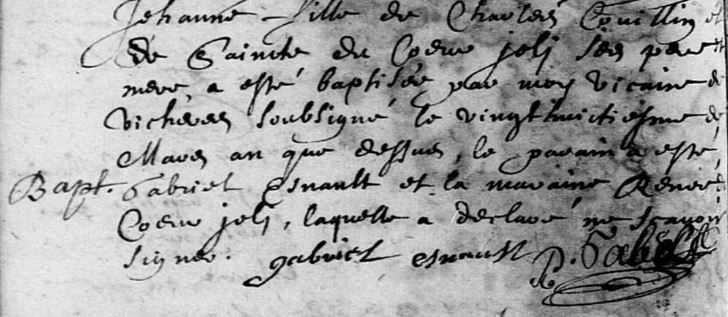 Jehanne fille de Charles Couillin et
de Saincte du Coeur joli ses pere et
mere, a esté baptisée par moy vicaire de
Vicheres soubsigné le vingthuictiesme de
Mars an que dessus, le parain a esté
Bapt. Gabriel Esnault et la maraine Renée
Coeur joli, laquelle a declaré ne scavoir
signer. gabriel esnault